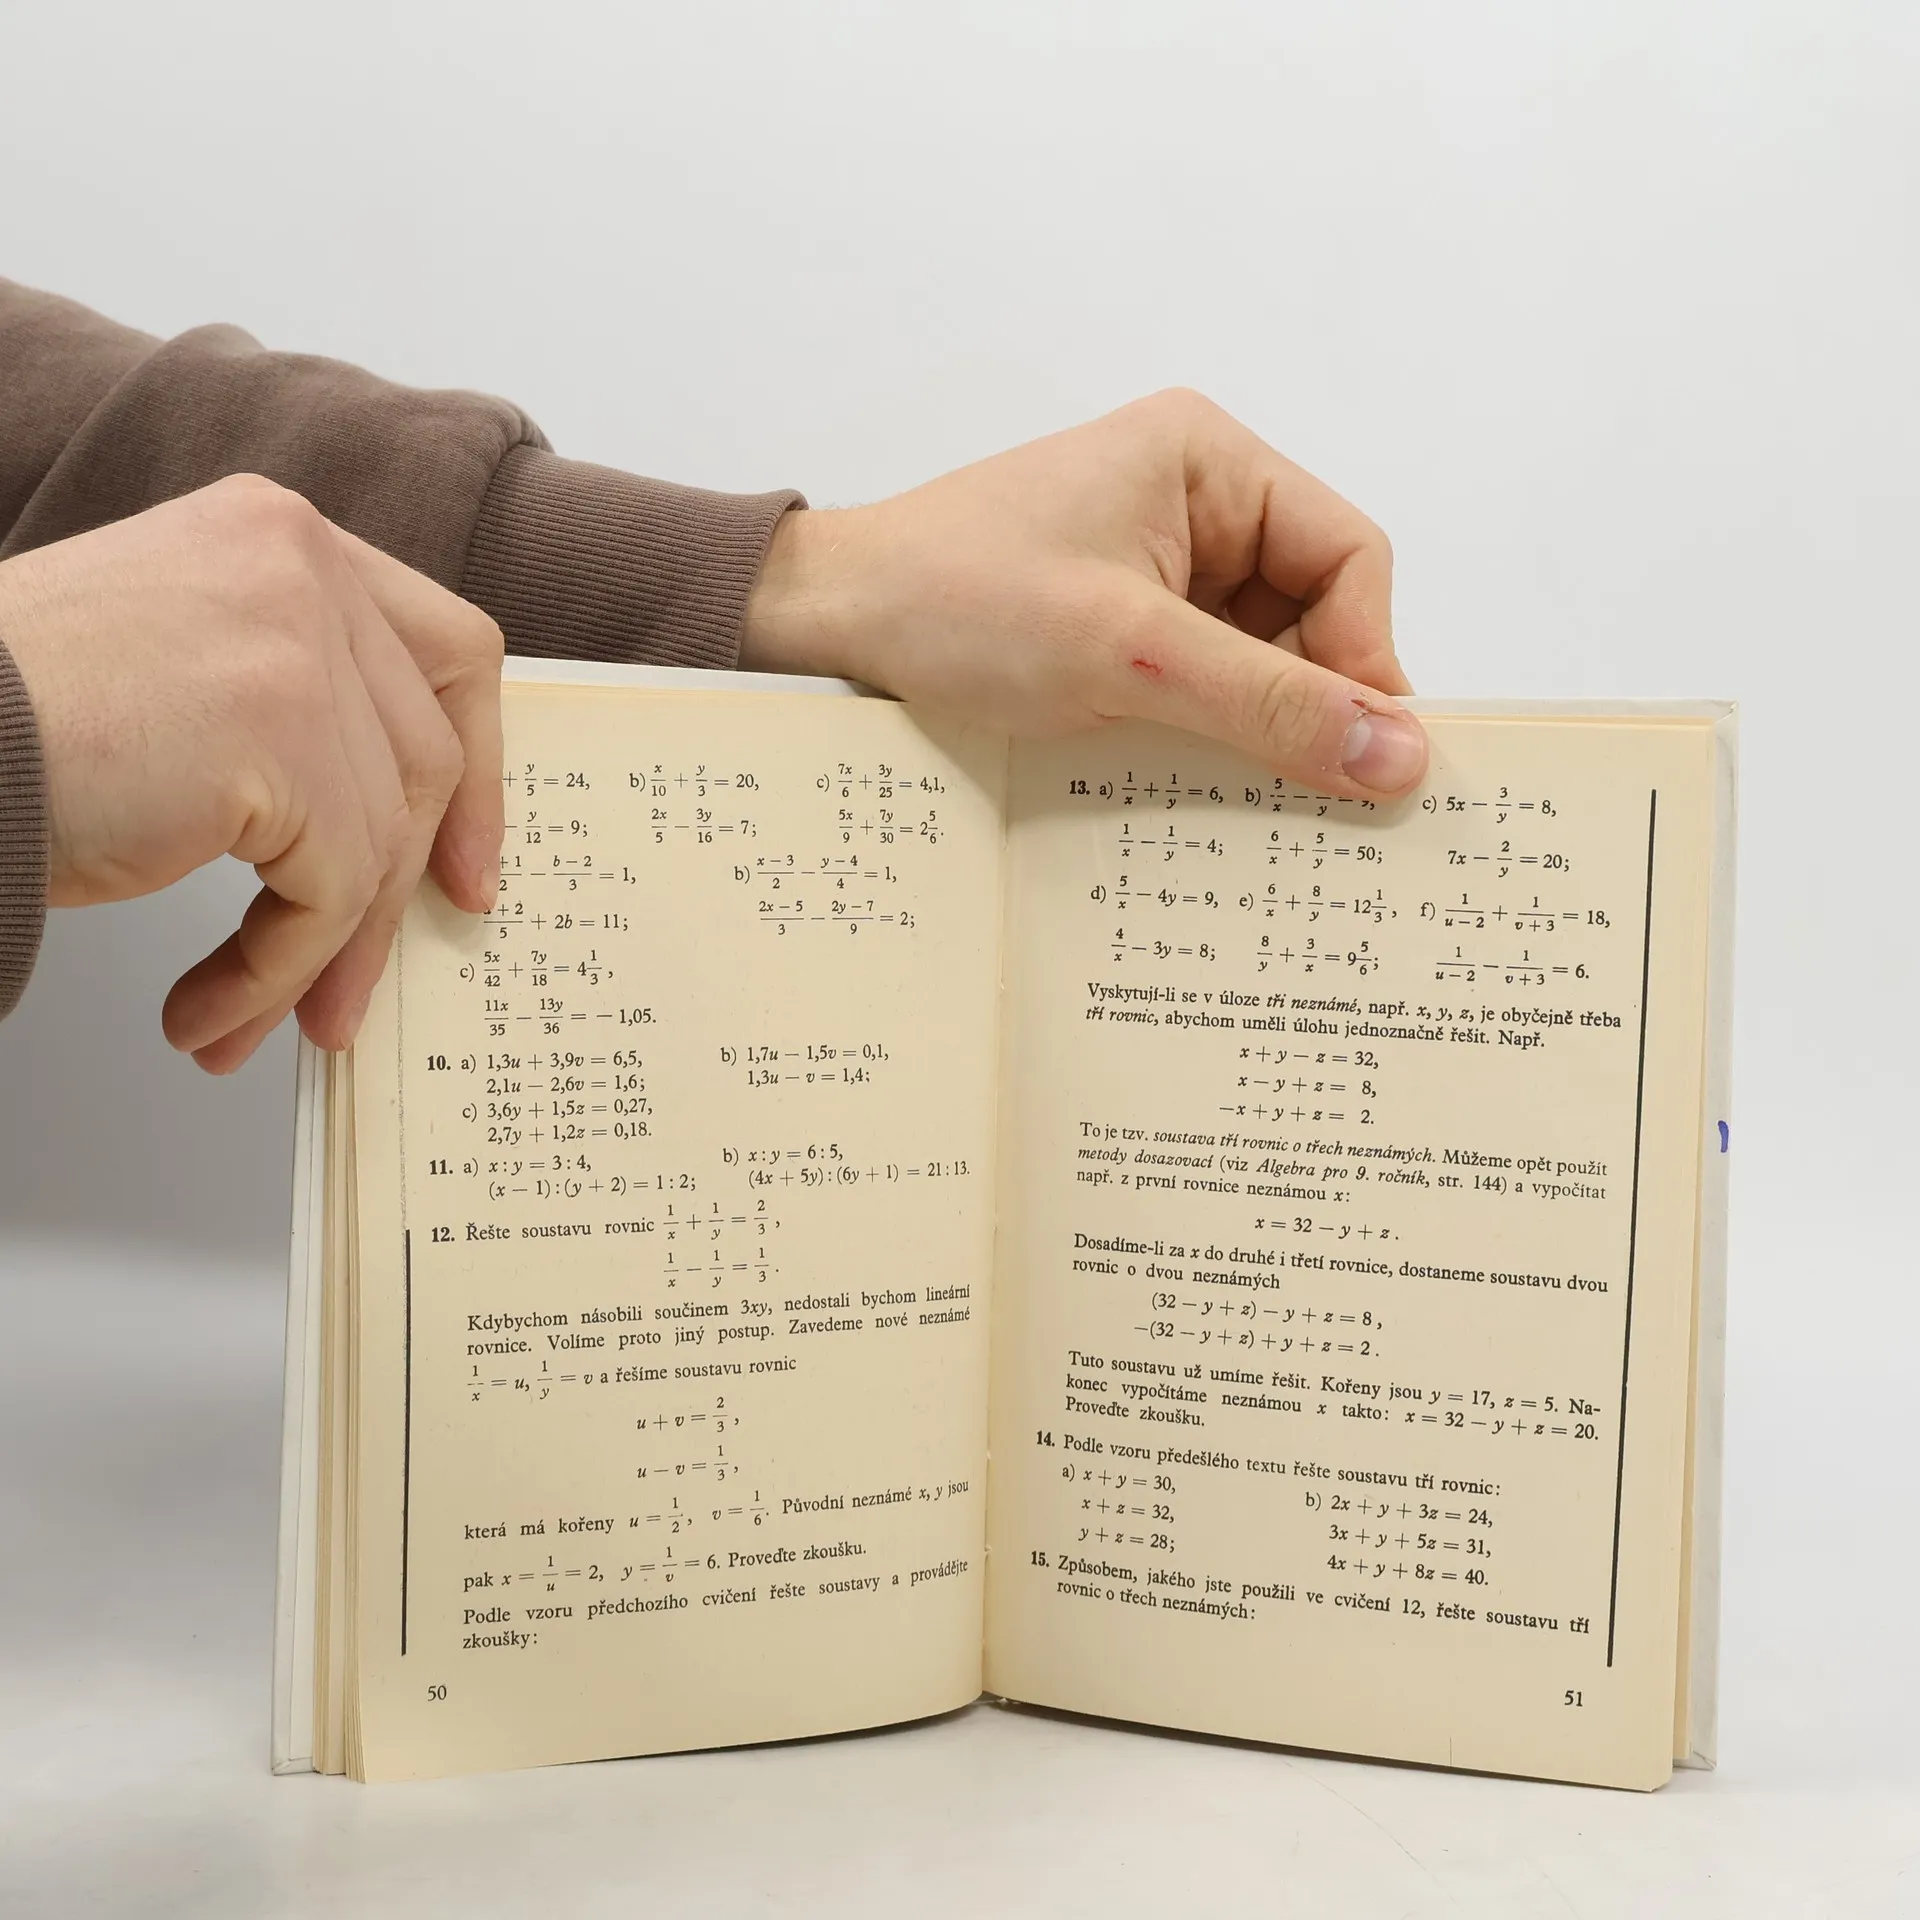 + y/5 = 24, b) x/10 + y/3 = 20, c) 7x/6 + 3y/25 = 4,1,
− y/12 = 9; 2x/5 − 3y/16 = 7; 5x/9 + 7y/30 = 2 5/6.
+ 1/2 − b − 2/3 = 1, b) x − 3/2 − y − 4/4 = 1,
+ 2/5 + 2b = 11; 2x − 5/3 − 2y − 7/9 = 2;
c) 5x/42 + 7y/18 = 4 1/3,
11x/35 − 13y/36 = − 1,05.
10. a) 1,3u + 3,9v = 6,5, b) 1,7u − 1,5v = 0,1,
2,1u − 2,6v = 1,6; 1,3u − v = 1,4;
c) 3,6y + 1,5z = 0,27,
2,7y + 1,2z = 0,18.
11. a) x : y = 3 : 4, b) x : y = 6 : 5,
(x − 1) : (y + 2) = 1 : 2; (4x + 5y) : (6y + 1) = 21 : 13.
12. Řešte soustavu rovnic 1/x + 1/y = 2/3,
1/x − 1/y = 1/3.
Kdybychom násobili součinem 3xy, nedostali bychom lineární
rovnice. Volíme proto jiný postup. Zavedeme nové neznámé
1/x = u, 1/y = v a řešíme soustavu rovnic
u + v = 2/3,
u − v = 1/3,
která má kořeny u = 1/2, v = 1/6. Původní neznámé x, y jsou
pak x = 1/u = 2, y = 1/v = 6. Proveďte zkoušku.
Podle vzoru předchozího cvičení řešte soustavy a provádějte
zkoušky:
50
13. a) 1/x + 1/y = 6, b) 5/x − /y c) 5x − 3/y = 8,
1/x − 1/y = 4; 6/x + 5/y = 50; 7x − 2/y = 20;
d) 5/x − 4y = 9, e) 6/x + 8/y = 12 1/3, f) 1/u − 2 + 1/v + 3 = 18,
4/x − 3y = 8; 8/y + 3/x = 9 5/6; 1/u − 2 − 1/v + 3 = 6.
Vyskytují-li se v úloze tři neznámé, např. x, y, z, je obyčejně třeba
tří rovnic, abychom uměli úlohu jednoznačně řešit. Např.
x + y − z = 32,
x − y + z = 8,
−x + y + z = 2.
To je tzv. soustava tří rovnic o třech neznámých. Můžeme opět použít
metody dosazovací (viz Algebra pro 9. ročník, str. 144) a vypočítat
např. z první rovnice neznámou x:
x = 32 − y + z.
Dosadíme-li za x do druhé i třetí rovnice, dostaneme soustavu dvou
rovnic o dvou neznámých
(32 − y + z) − y + z = 8,
−(32 − y + z) + y + z = 2.
Tuto soustavu už umíme řešit. Kořeny jsou y = 17, z = 5. Na-
konec vypočítáme neznámou x takto: x = 32 − y + z = 20.
Proveďte zkoušku.
14. Podle vzoru předešlého textu řešte soustavu tří rovnic:
a) x + y = 30, b) 2x + y + 3z = 24,
x + z = 32, 3x + y + 5z = 31,
y + z = 28; 4x + y + 8z = 40.
15. Způsobem, jakého jste použili ve cvičení 12, řešte soustavu tří
rovnic o třech neznámých:
51